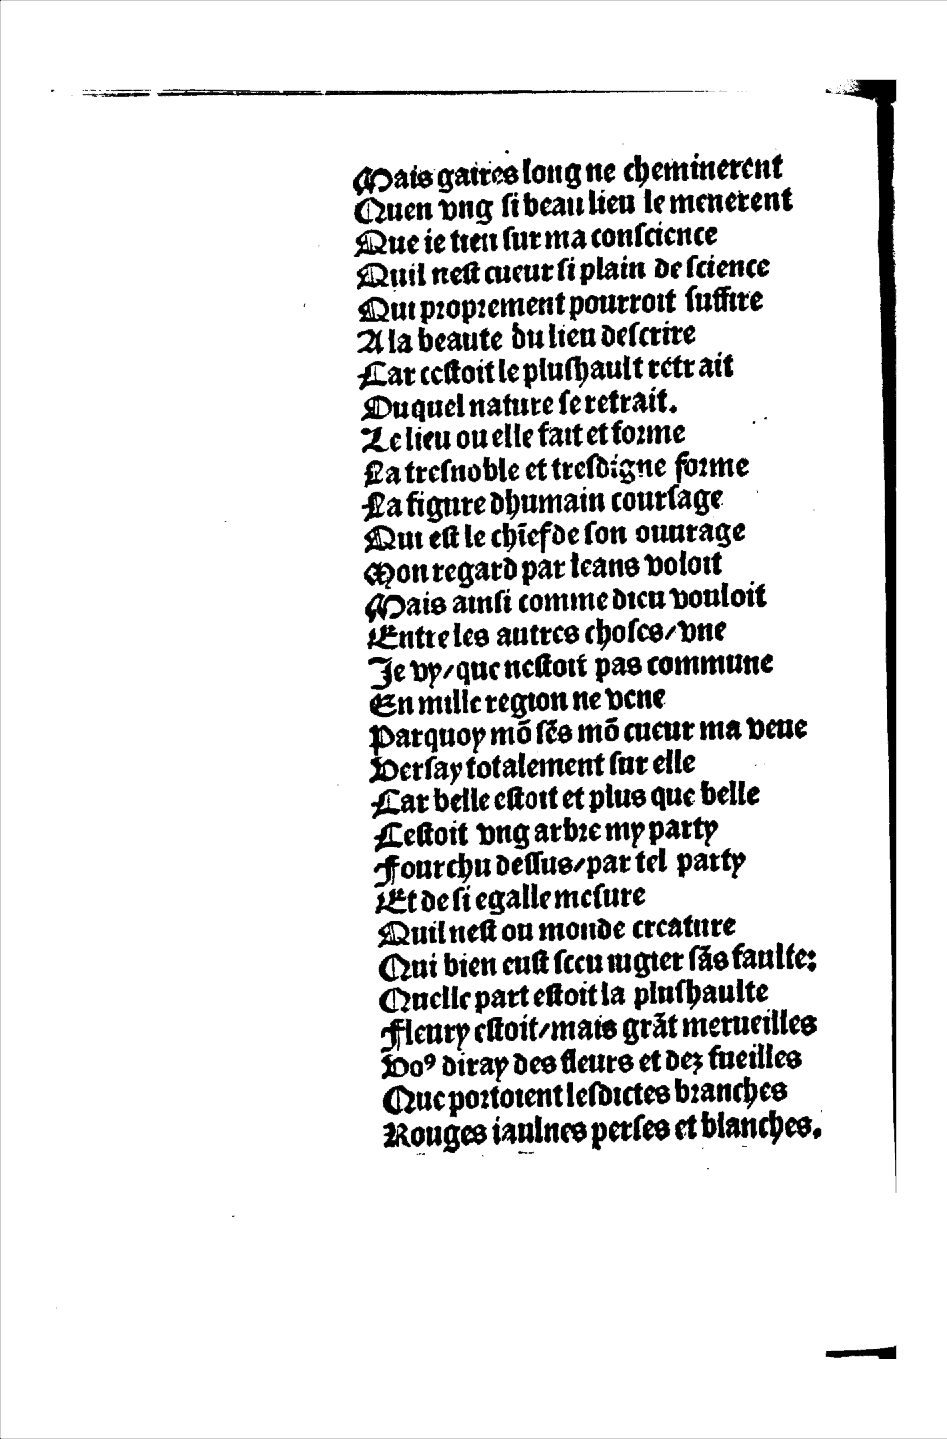 Mais gaires long ne cheminerent
Quen vng si beau lieu le menerent
Que ie tien sur ma conscience
Quil nest cueur si plain de science
Qui proprement pourroit suffire
A la beaute du lieu descrire
Car cestoit le plushault retrait
Duquel nature se retrait.
Le lieu ou elle fait et forme
La tresnoble et tresdigne forme
La figure dhumain coursage
Qui est le chief de son ouurage
Mon regard par leans voloit
Mais ainsi comme dieu vouloit
Entre les autres choses/vne
Je vy/que nestoit pas commune
En mille region ne vene
Parquoy mõ sẽs mõ cueur ma veue
Versay totalement sur elle
Car belle estoit et plus que belle
Cestoit vng arbre my party
Fourchu dessus/par tel party
Et de si egalle mesure
Quil nest ou monde creature
Qui bien eust sceu iugier sãs faulte:
Quelle part estoit la plushaulte
Fleury estoit/mais grãt merueilles
Voꝰ diray des fleurs et dez fueilles
Que portoient lesdictes branches
Rouges iaulnes perses et blanches.